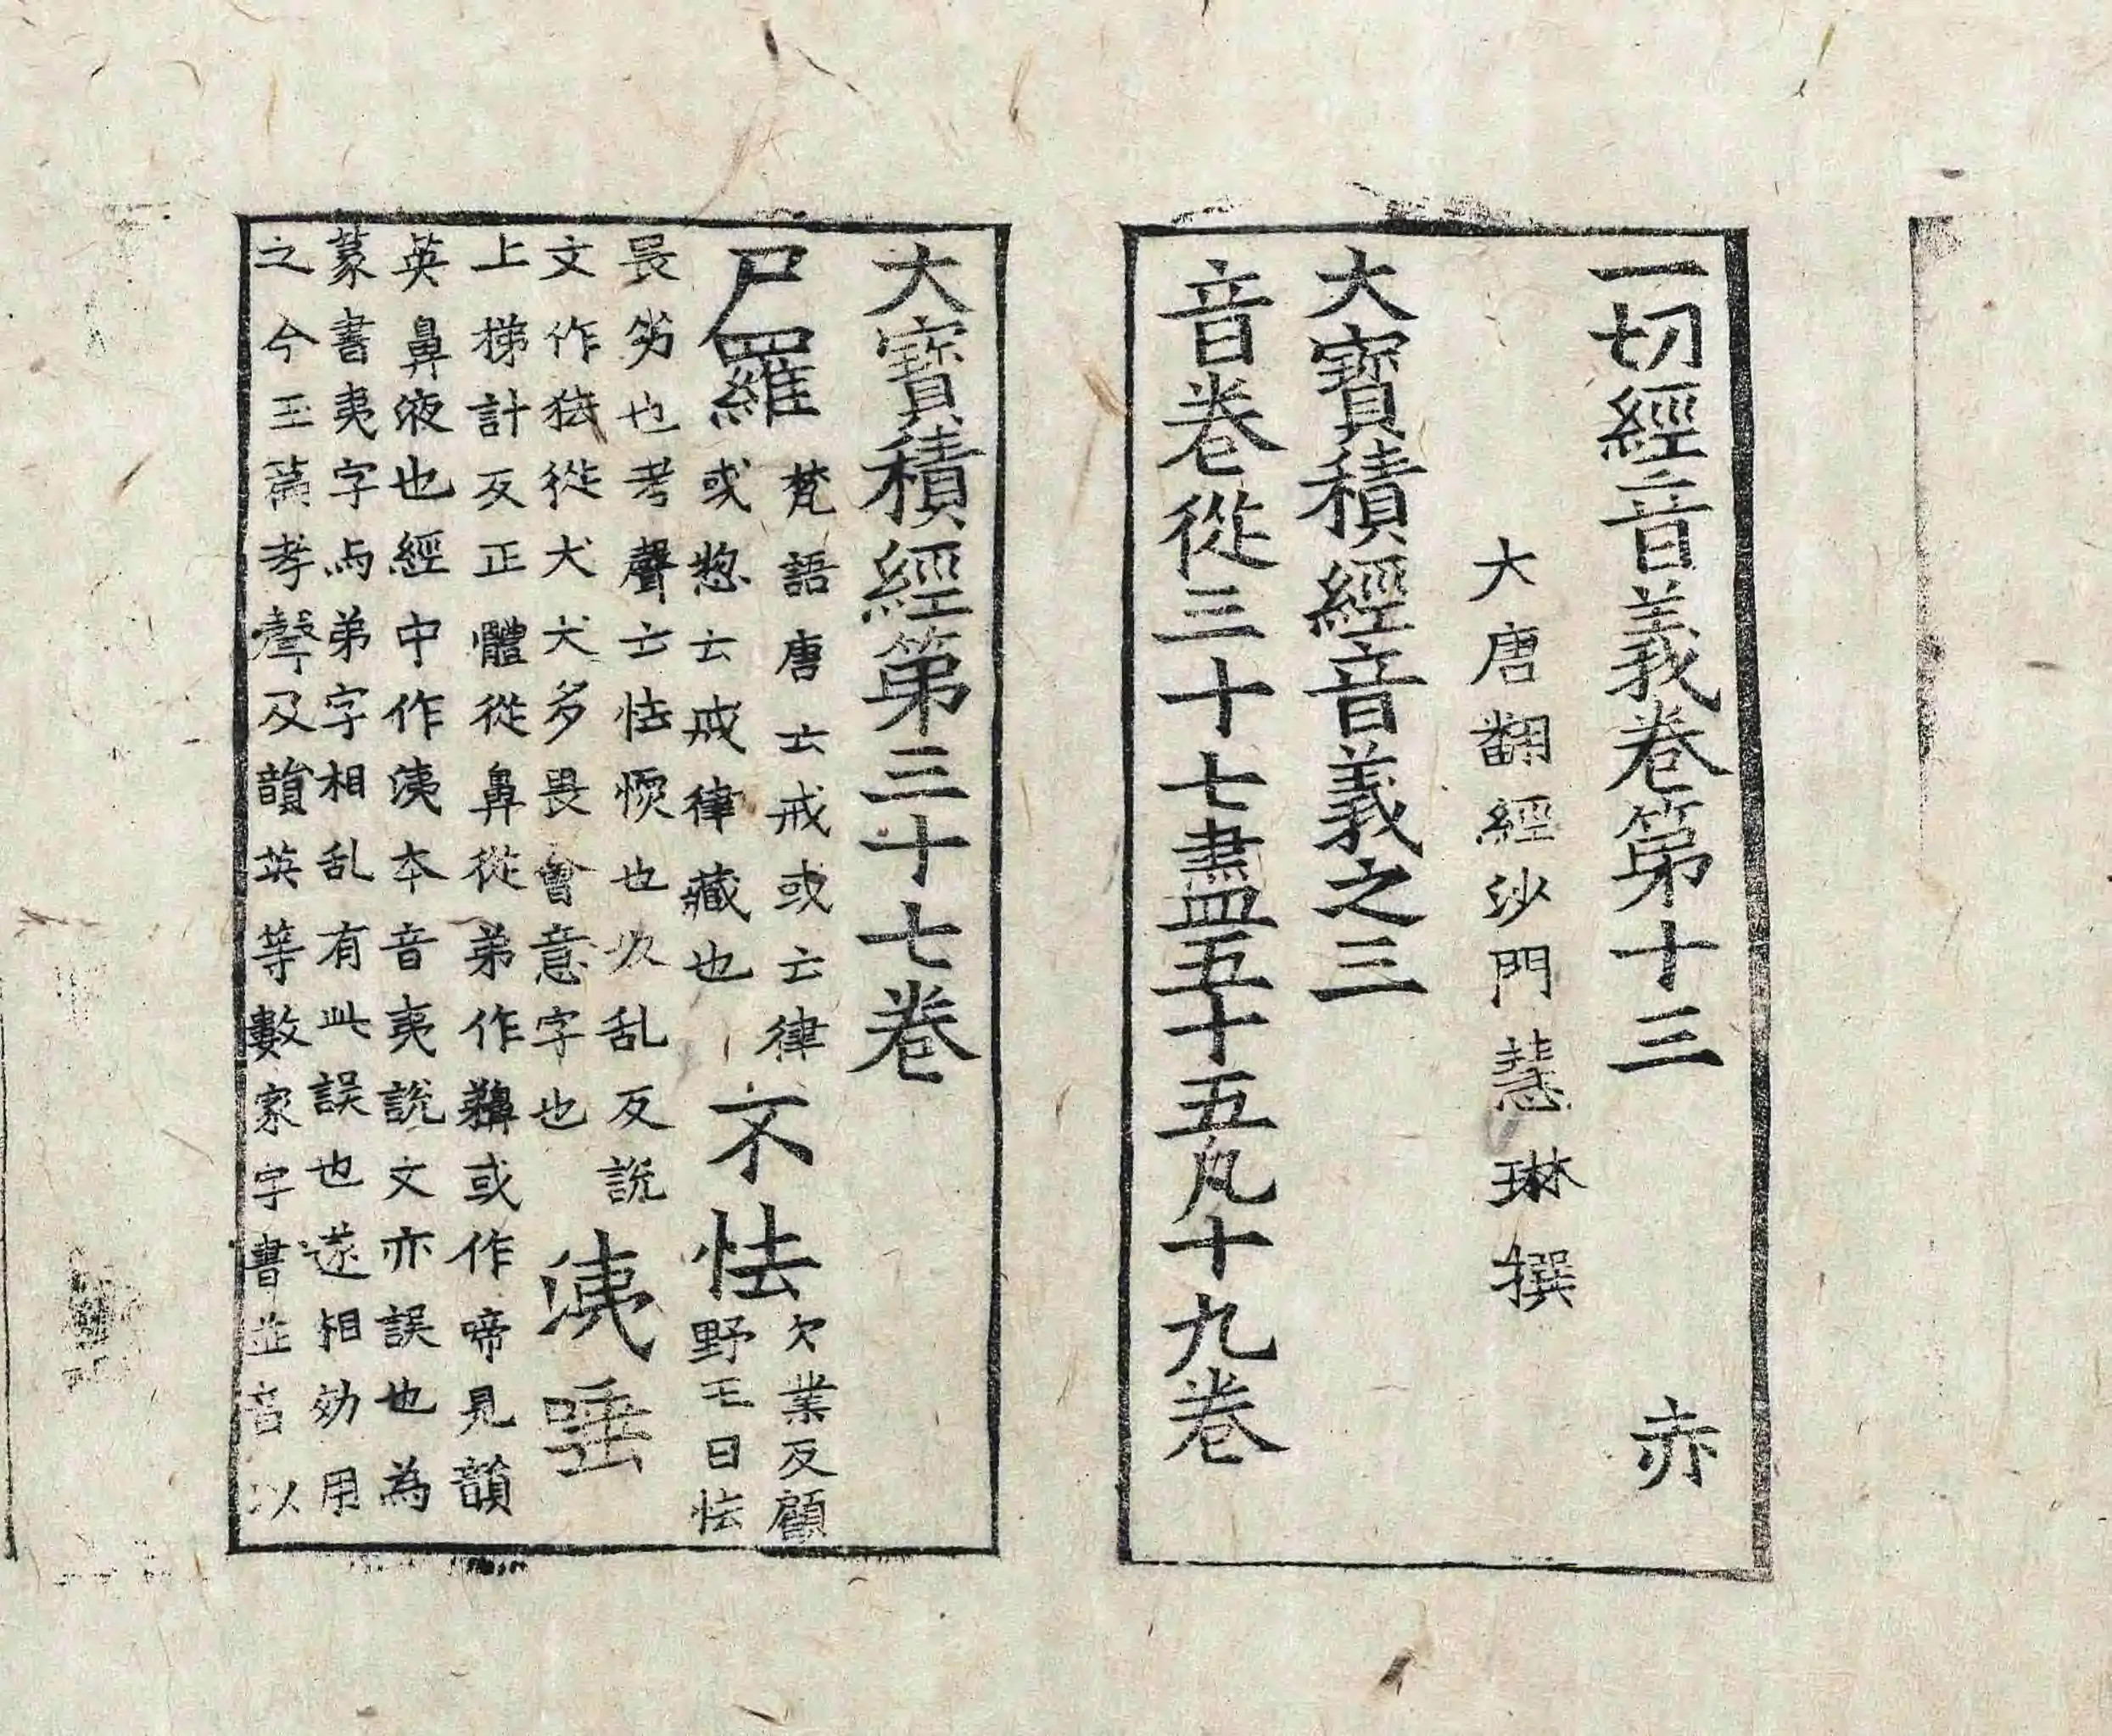 一切經音義卷第十三 赤
大唐翻經沙門慧琳撰
大寶積經音義之三
音卷從三十七盡五十五凡十九卷
大寶積經第三十七卷
尸羅 梵語唐云戒或云律
或惣云戒律藏也 不怯 欠業反顧
野王曰怯
畏劣也考聲云怯愞也奴乱反說
文作㹤從犬犬多畏會意字也 洟唾
上梯計反正體從鼻從弟作𪖩或作啼見韻
英鼻液也經中作洟本音夷說文亦誤也為
篆書夷字与弟字相乱有此誤也遂相効用
之今玉篇考聲及韻英等數家字書並音以